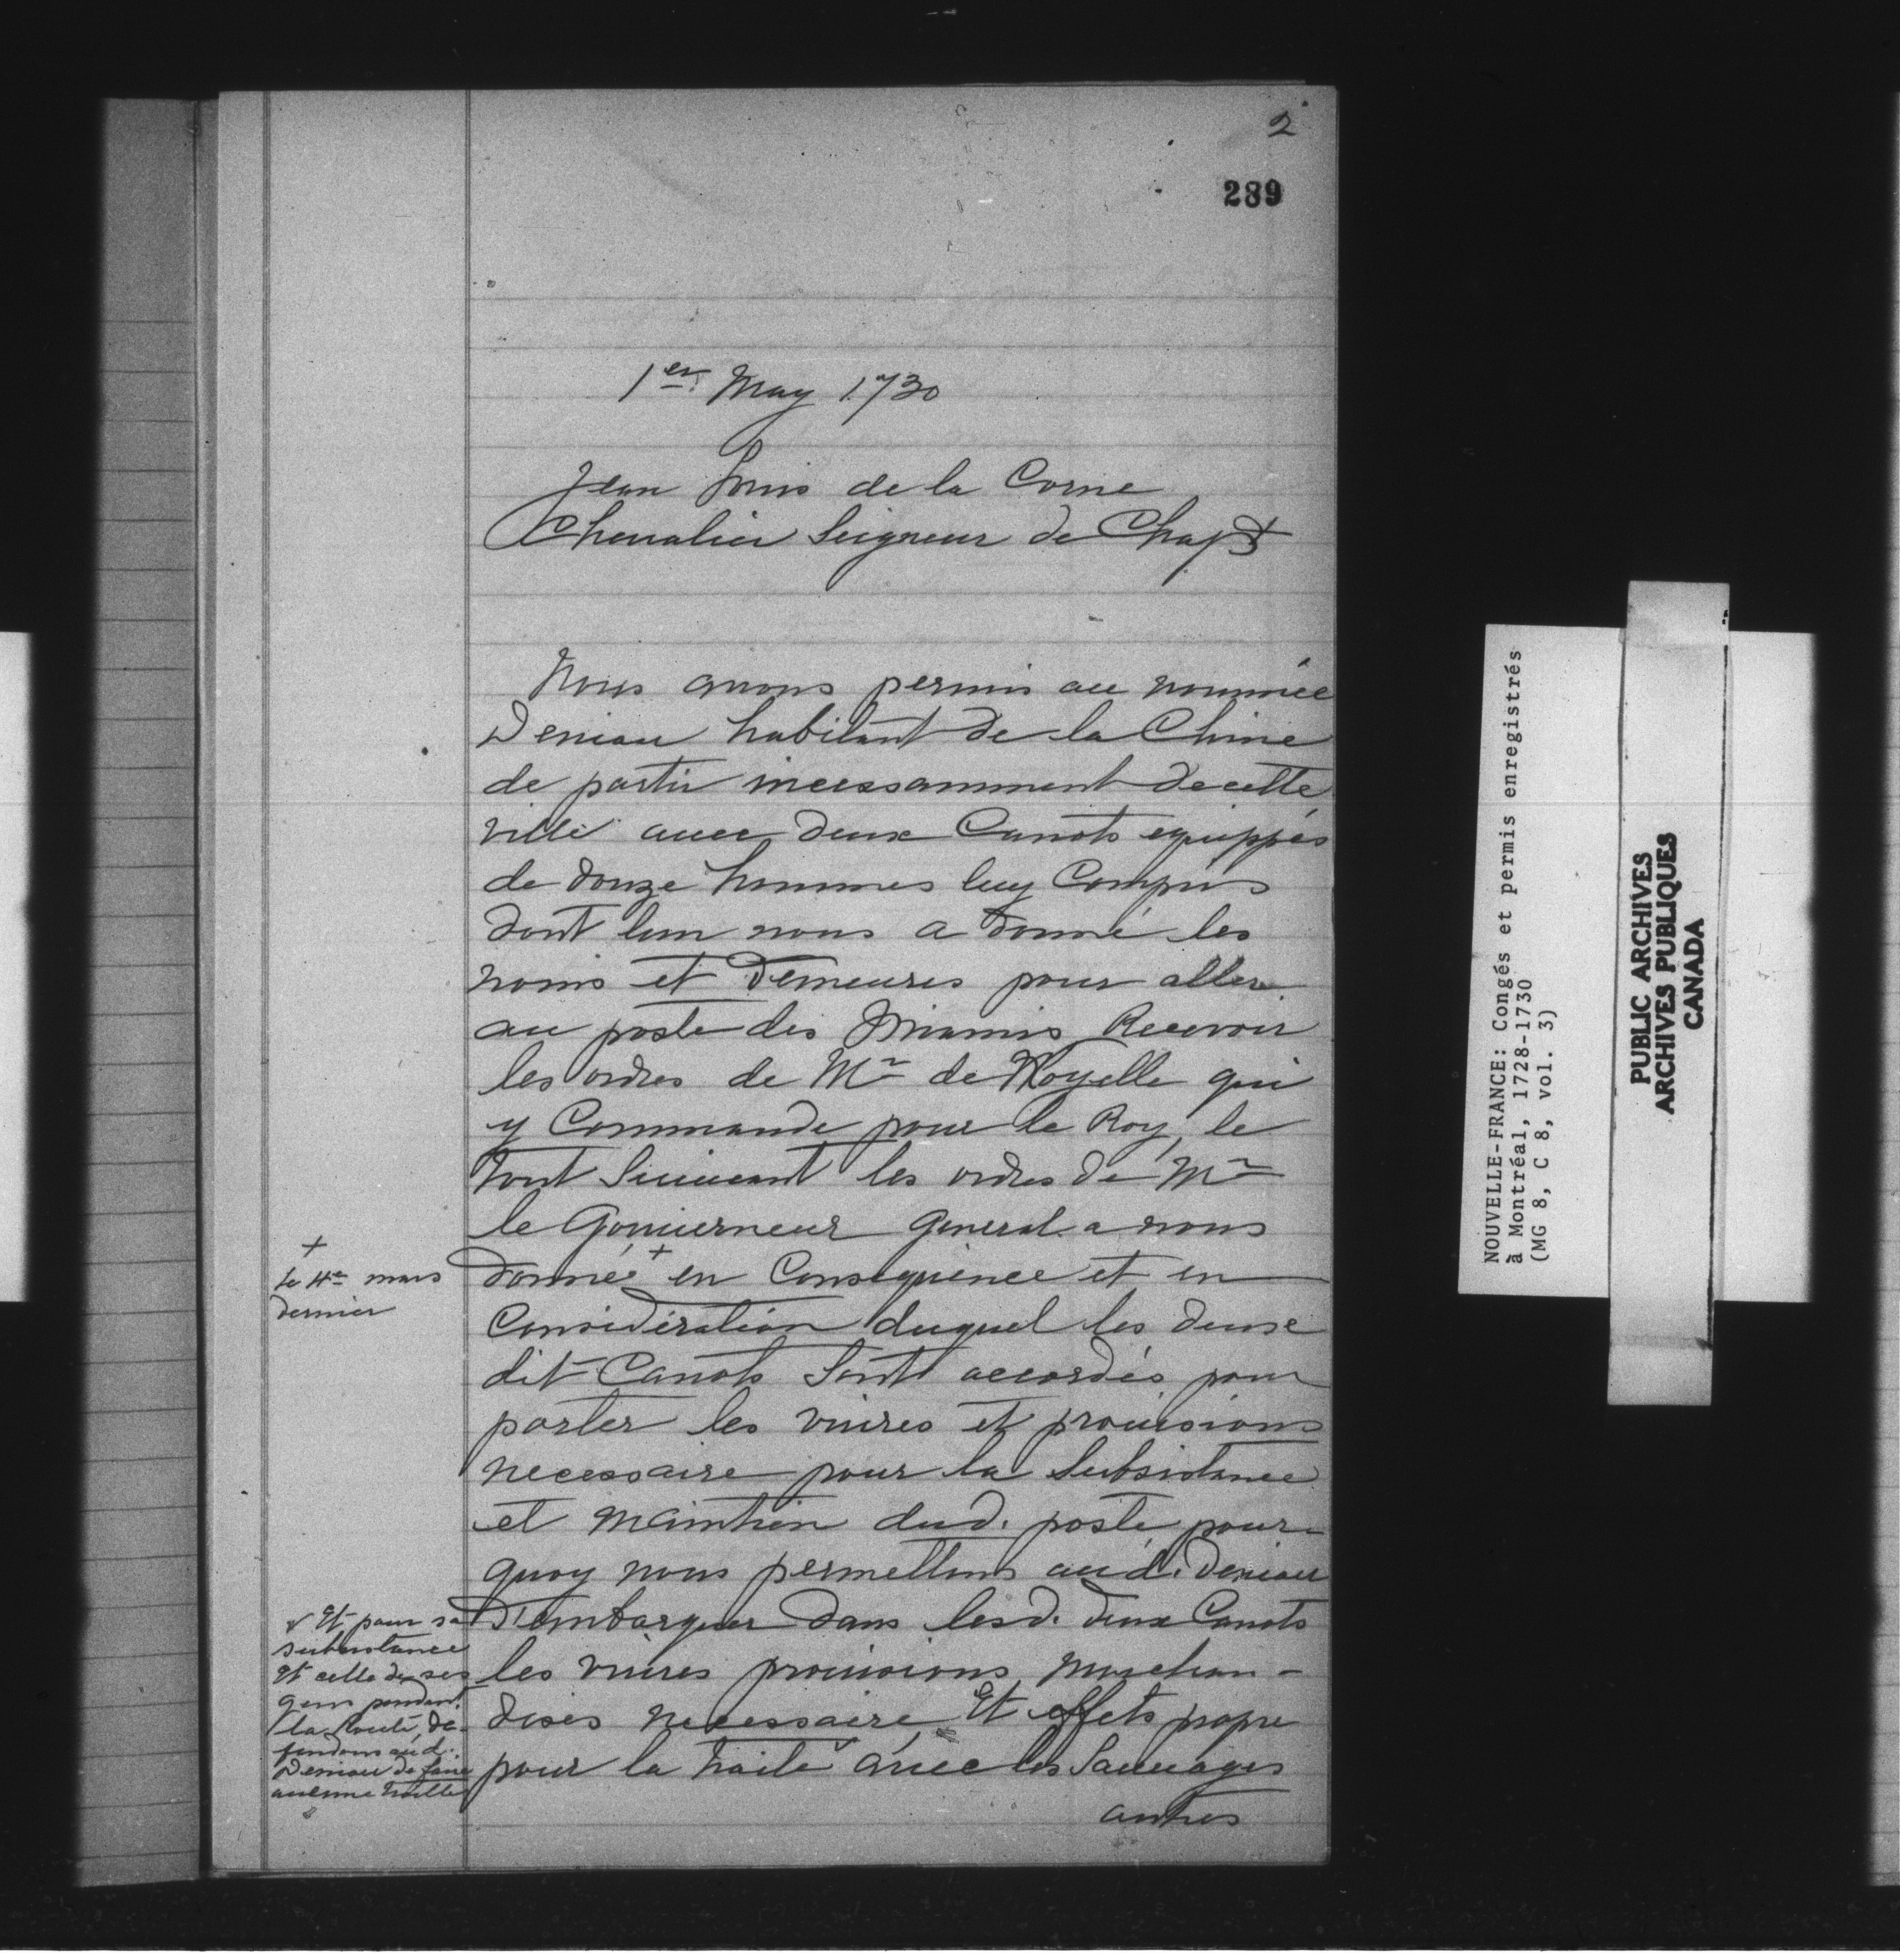 2
289
1er May 1730
Jean Louis de la Corne
Chevalier Seigneur de Chapt
Nous avons permis au nommée
Deniau habitant de la Chine
de partir incessamment de cette
ville avec deux Canots equippés
de douze hommes luy Compris
dont lun nous a donné les
noms et Demeures pour aller
au poste des Miamis Recevoir
les ordres de Mr de Noyelle qui
y Commande pour le Roy, le
tout Suiuant les ordres de Mr
le Gouuerneur General a nous
+
le 4e mars
dernier
donnée + en Consequence et en
Consideration duquel les deux
dit Canots Sont accordés pour
porter les viures et prouisions
necessaire pour la Subsistance
et maintien dud. poste pour-
quoy nous permettons aud. Deniau
D'embarquer dans lesd. deux Canots
les viures prouisions marchan-
dises necessaire Et effets propre
pour la traite auec les Sauuages
autres
Et pour sa
subsistance
et celle de ses
gens pendant
la route, de-
fendons aud.
Deniau de faire
aucune traitte
NOUVELLE-FRANCE: Congés et permis enregistrés
à Montréal, 1728-1730
(MG 8, C 8, vol. 3)
PUBLIC ARCHIVES
ARCHIVES PUBLIQUES
CANADA